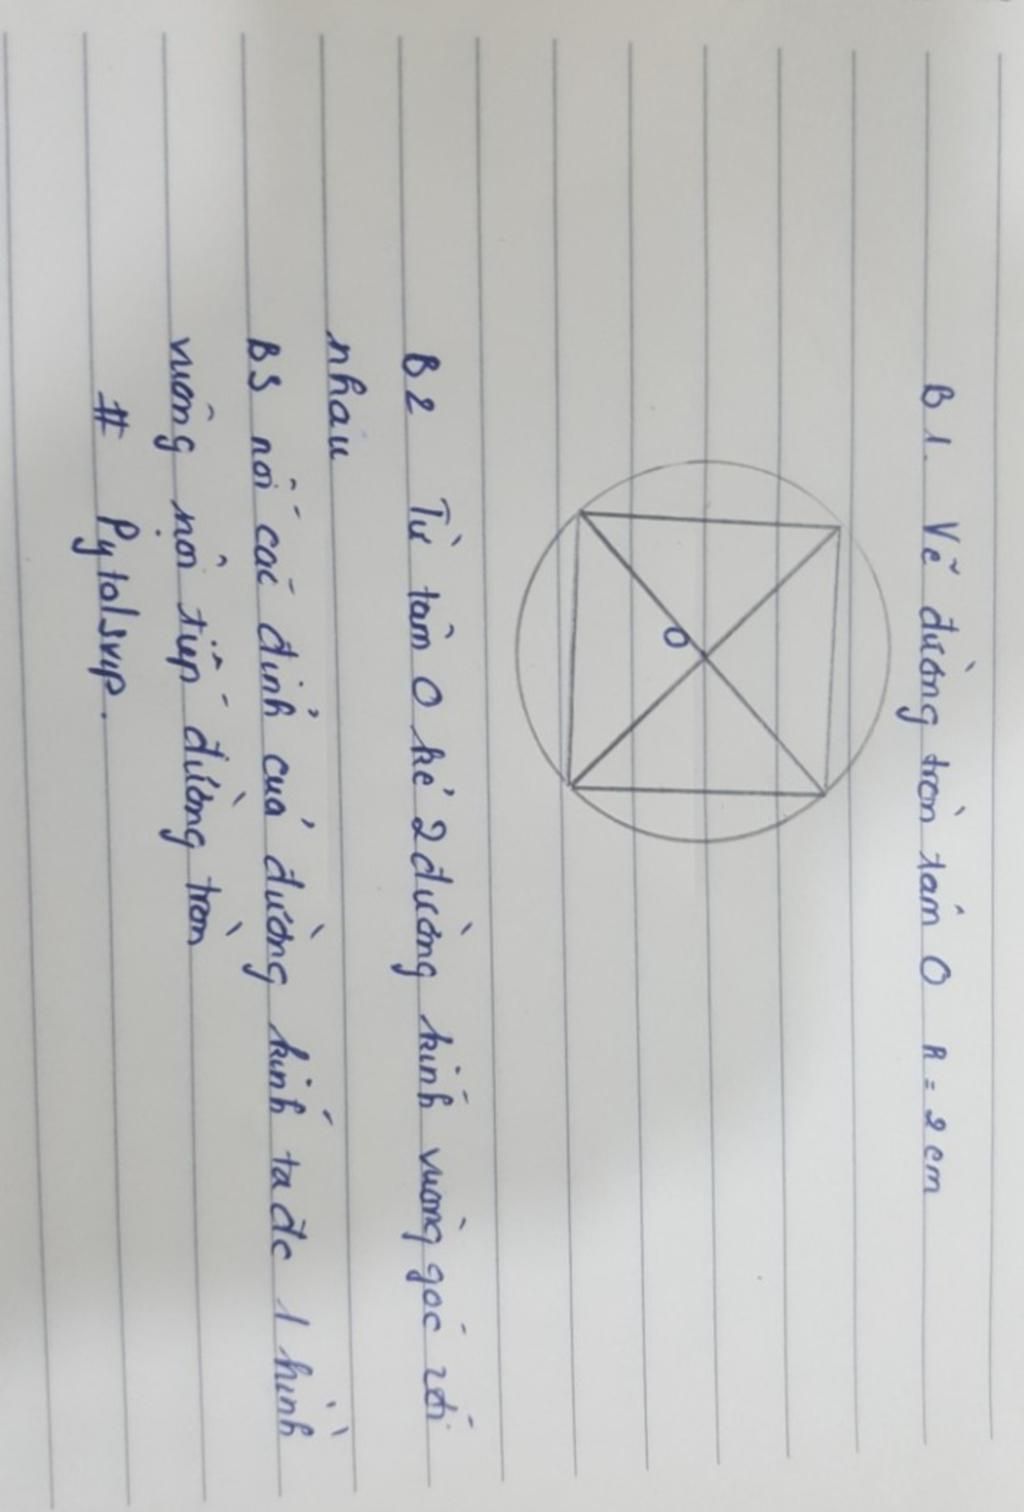 B1. Vẽ đường tròn tâm O R = 2cm
O
B2 Từ tâm O kẻ 2 đường kính vuông góc với
nhau
B3 nối các đỉnh của đường kính ta đc 1 hình
vuông nội tiếp đường tròn
# Pytolsvip.